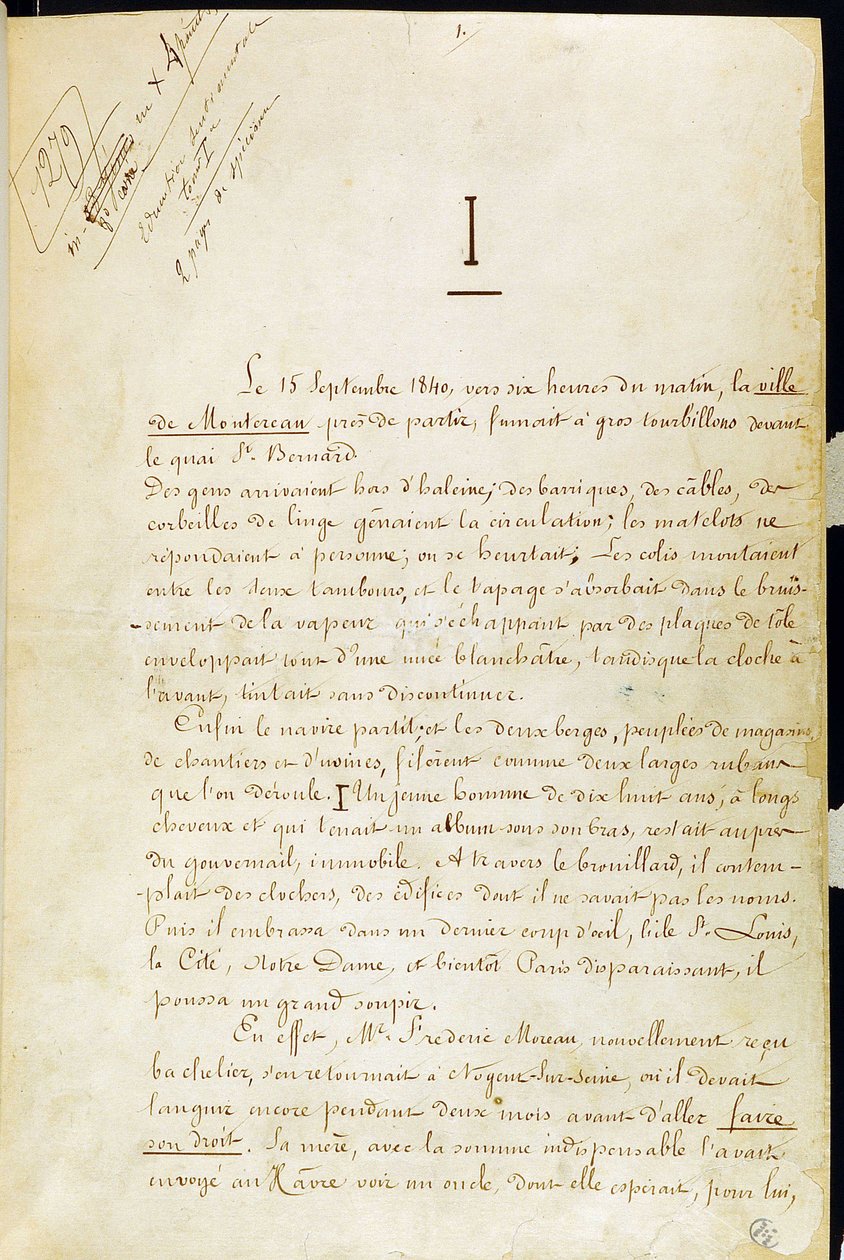 1.
1279
in X
Education sentimentale
tome Ier
2 pages de spécimen
I
Le 15 Septembre 1840, vers six heures du matin, la ville
de Montereau près de partir, fumait à gros tourbillons devant
le quai St. Bernard.
Des gens arrivaient hors d'haleine; des barriques, des câbles, des
corbeilles de linge gênaient la circulation; les matelots ne
répondaient à personne; on se heurtait; Les colis montaient
entre les deux tambours, et le tapage s'absorbait dans le bruis-
-sement de la vapeur qui s'échappant par des plaques de tôle
enveloppait tout d'une nuée blanchâtre, tandis que la cloche à
l'avant, tintait sans discontinuer.
Enfin le navire partit; et les deux berges, peuplées de magasins,
de chantiers et d'usines, filèrent comme deux larges rubans
que l'on déroule. I Un jeune homme de dix huit ans, à longs
cheveux et qui tenait un album sous son bras, restait auprès
du gouvernail, immobile. A travers le brouillard, il contem-
-plait des clochers, des édifices dont il ne savait pas les noms.
Puis il embrassa dans un dernier coup d'oeil, l'île St. Louis,
la Cité, Notre Dame, et bientôt Paris disparaissant, il
poussa un grand soupir.
En effet, Mr. Frederic Moreau, nouvellement reçu
bachelier, s'en retournait à Nogent-Sur-Seine, où il devait
languir encore pendant deux mois avant d'aller faire
son droit. Sa mère, avec la somme indispensable l'avait
envoyé au Hâvre voir un oncle, dont elle espérait, pour lui,